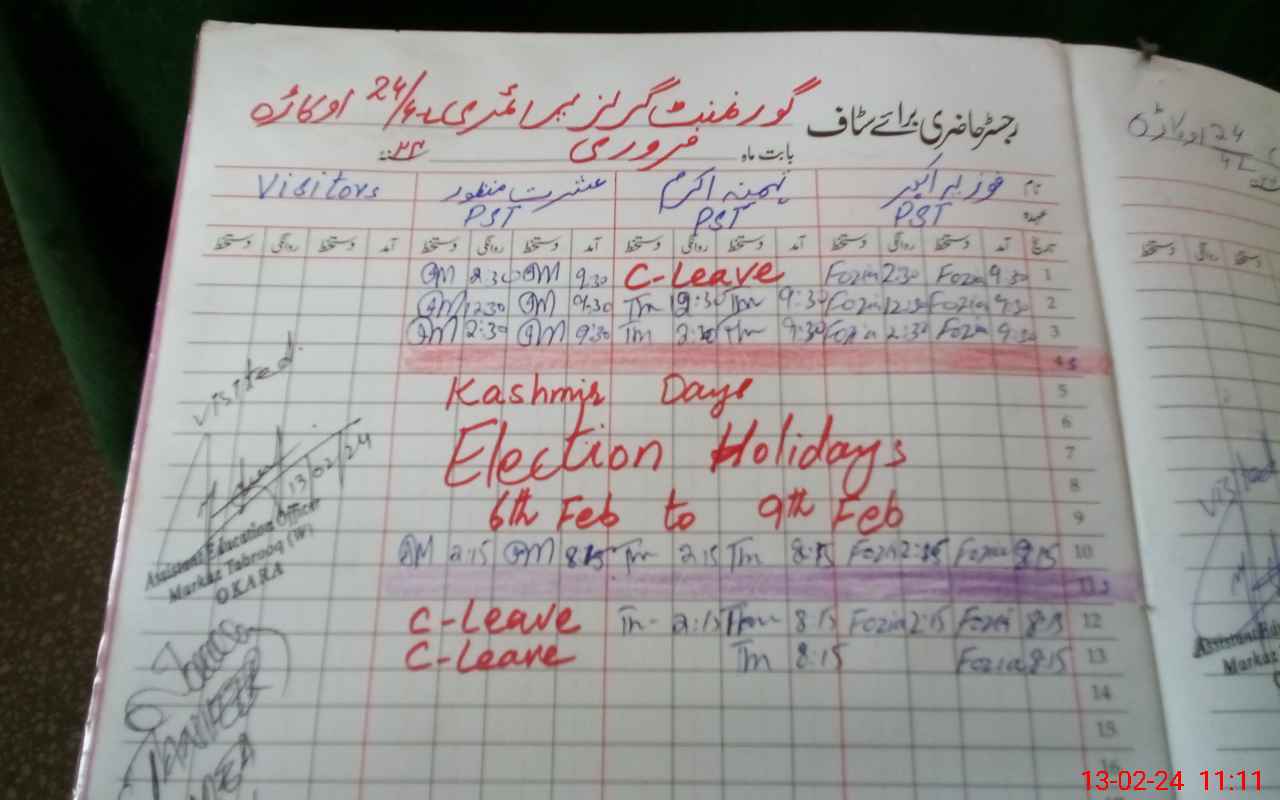 رجسٹر حاضری برائے سٹاف گورنمنٹ گرلز پرائمری 24/4L اوکاڑہ
بابت ماہ فروری
نام فوزیہ اکبر اکرم عشرت منظور Visitors
عہدہ PST PST PST
تاریخ آمد دستخط روانگی دستخط آمد دستخط روانگی دستخط آمد دستخط روانگی دستخط آمد دستخط روانگی دستخط
1 9:30 Fozia 2:30 Fozia C-Leave 9:30 2:30
2 9:30 Fozia 12:30 Fozia 9:30 Tm 12:30 Tm 9:30 12:30
3 9:30 Fozia 2:30 Fozia 9:30 Tm 2:30 Tm 9:30 2:30
4 S
5 Kashmir Days
6
7 Election Holidays
8
9 6th Feb to 9th Feb
10 8:15 Fozia 2:15 Fozia 8:15 Tm 2:15 Tm 8:15 2:15
11 S
12 8:15 Fozia 2:15 Fozia 8:15 Tm 2:15 Tm C-Leave
13 8:15 Fozia 8:15 Tm C-Leave
14
15
16
visited
13/02/24
Assistant Education Officer
Markaz Tabrooq (W)
OKARA
اوکاڑہ 24/4L
visited
Assistant Edu
Markaz
13-02-24 11:11